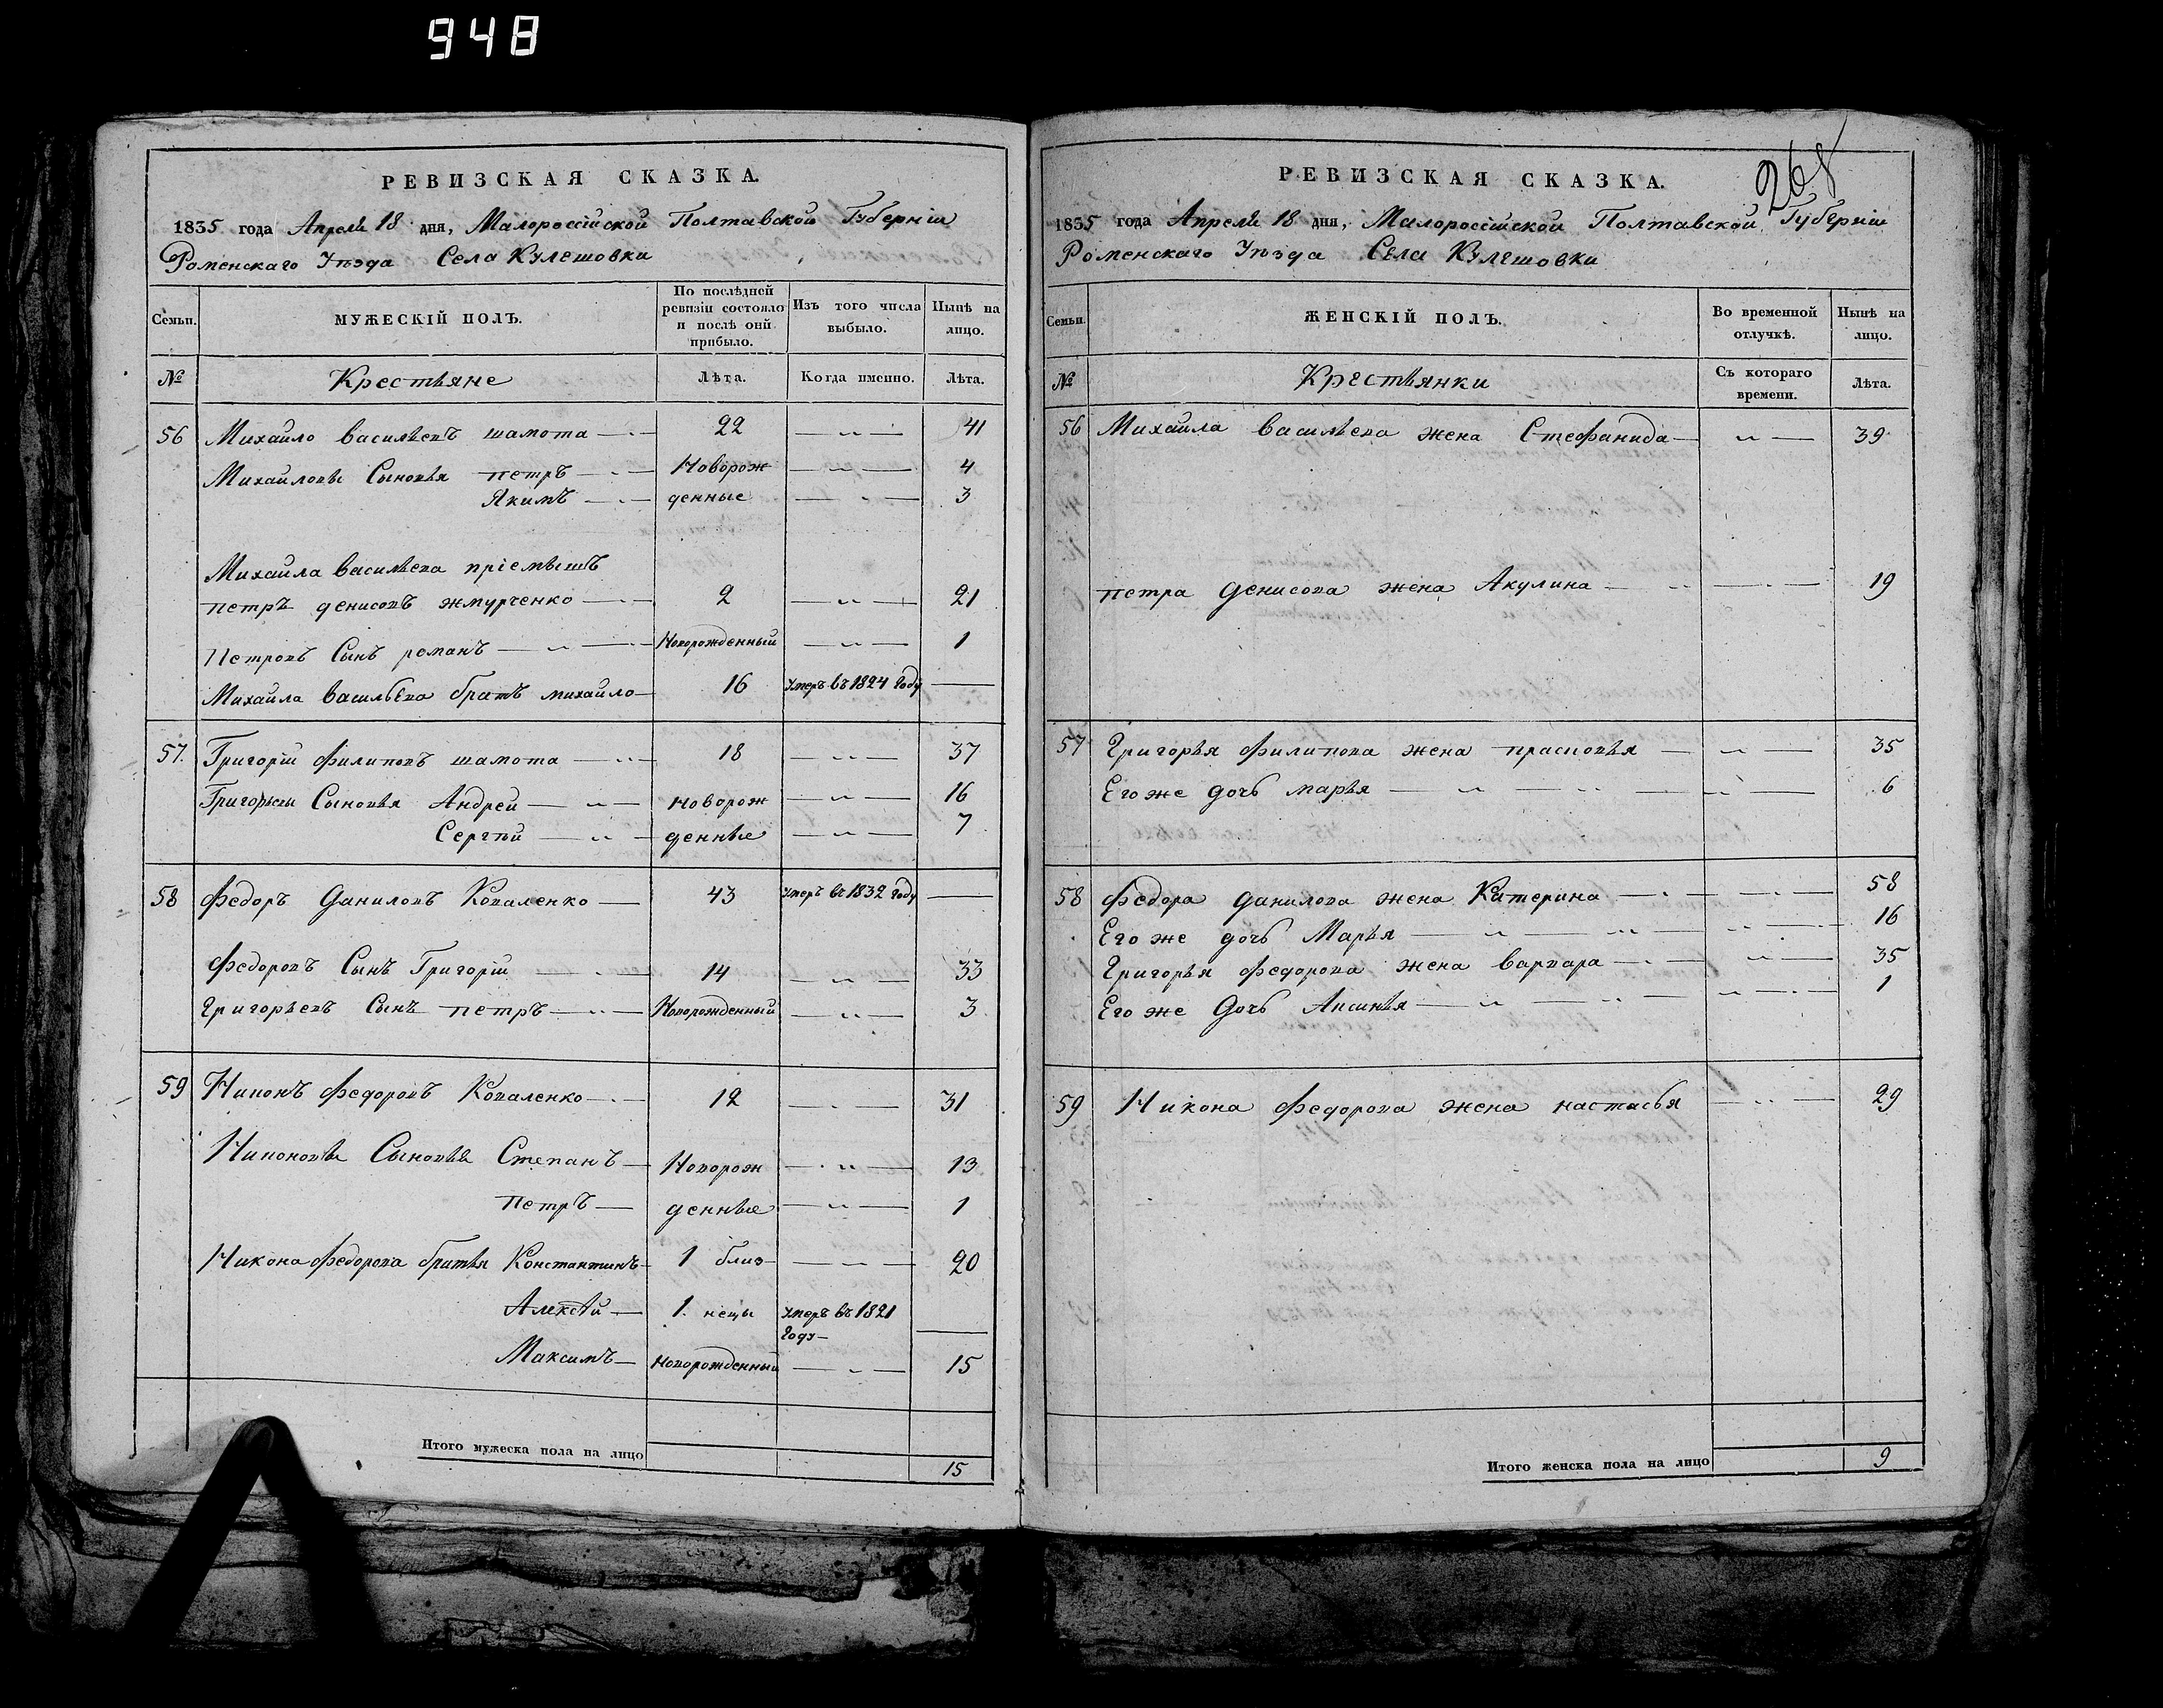 948
РЕВИЗСКАЯ СКАЗКА.
1835 года Апреля 18 дня, Малороссійской Полтавской Губерніи
Роменскаго Уѣзда Села Кулешовки
Семьи.
МУЖЕСКІЙ ПОЛЪ.
По послѣдней ревизіи состояло и послѣ оий прибыло.
Изъ того числа выбыло.
Нынѣ на лицо.
№ Крестьяне Лѣта. Когда именно. Лѣта.
56 Михайло Васильевъ шамота 22 — „ — 41
Михайловы Сыновья петръ Новорож — „ — 4
Якимъ денные — „ — 3
Михайла Васильева пріемышъ
петръ денисовъ жмурченко 2 — „ — 21
Петровъ Сынъ романъ Новорожденный — „ — 1
Михайла Васильева братъ михайло 16 Умеръ въ 1824 Году —
57. Григорій филиповъ шамота 18 — „ — 37
Григорьевы Сыновья Андрей новорож — „ — 16
Сергѣй денные — „ — 7
58 федоръ Даниловъ Коваленко 43 Умеръ въ 1832 Году —
федоровъ Сынъ Григорій 14 — „ — 33
Григорьевъ Сынъ петръ Новорожденный — „ — 3
59 Никонъ федоровъ Коваленко 12 — „ — 31
Никоновы Сыновья Степанъ Новорож — „ — 13
петръ денные — „ — 1
Никона федорова братья Константинъ 1 близ — „ — 20
Алексѣй 1. нецы Умеръ въ 1821
Году —
Максимъ новорожденный — „ — 15
Итого мужеска пола на лицо 15
268
РЕВИЗСКАЯ СКАЗКА.
1835 года Апреля 18 дня, Малороссійской Полтавской Губерніи
Роменскаго Уѣзда Села Кулешовки
Семьи.
ЖЕНСКІЙ ПОЛЪ.
Во временной отлучкѣ.
Нынѣ на лицо.
№ Крестьянки Съ котораго времени. Лѣта.
56 Михайла Васильева жена Стефанида — „ — 39
петра Денисова жена Акулина — „ — 19
57 Григорья филипова жена прасковья — „ — 35
Его же дочь марья — „ — 6
58 федора данилова жена Катерина — „ — 58
Его же дочь Марья — „ — 16
Григорья федорова жена варвара — „ — 35
Его же Дочь Аксинья — „ — 1
59 Никона федорова жена настасья — „ — 29
Итого женска пола на лицо 9